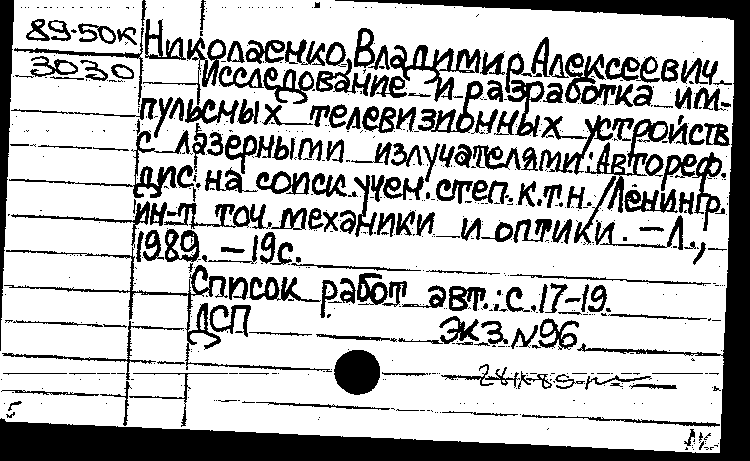 89-50к
3030
Николаенко, Владимир Алексеевич.
Исследование и разработка им-
пульсных телевизионных устройств
с лазерными излучателями: Автореф.
дис. на соиск. учен. степ. к.т.н. / Ленингр.
ин-т точ. механики и оптики. – Л.,
1989. – 19 с.
Список работ авт.: с. 17-19.
ДСП
Экз. N96.
5
АК